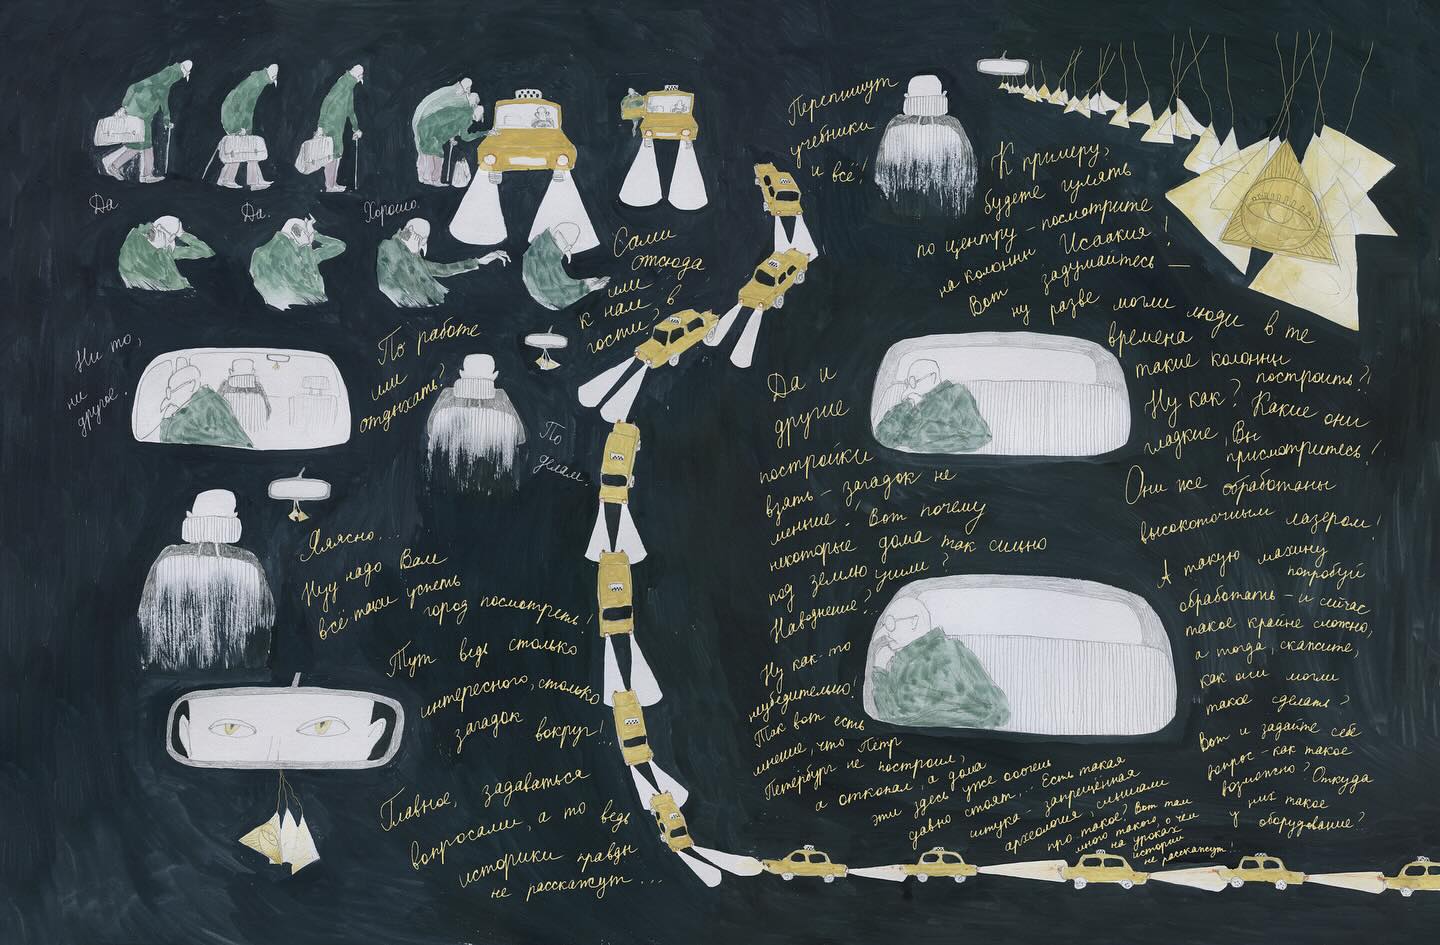 Да
Да.
Хорошо.
Сами
отсюда
или
к нам в
гости?
Ни то,
ни
другое.
По работе
или
отдыхать?
По
делам.
Яяясно...
Нуу надо Вам
всё таки успеть
город посмотреть!
Тут ведь столько
интересного, столько
загадок вокруг!..
Главное, задаваться
вопросами, а то ведь
историки правды
не расскажут...
Перепишут
учебники
и всё!
К примеру,
будете гулять
по центру - посмотрите
на колонны Исаакия!
Вот задумайтесь —
ну разве могли люди в те
времена
такие колонны
построить?!
Ну как? Какие они
гладкие, Вы
присмотритесь!
Они же обработаны
высокоточным лазером!
А такую махину
попробуй
обработать - и сейчас
такое крайне сложно,
а тогда, скажите,
как они могли
такое сделать?
Вот и задайте себе
вопрос - как такое
возможно? Откуда
у них такое
оборудование?
Да и
другие
постройки
взять - загадок не
меньше. Вот почему
некоторые дома так сильно
под землю ушли?
Наводнение?..
Ну как-то
неубедительно!
Так вот есть
мнение, что Пётр
Петербург не построил,
а откопал, а дома
эти здесь уже ооочень
давно стоят... Есть такая
штука - запрещённая
археология, слышали
про такое? Вот там
много такого, о чём
на уроках
истории
не расскажут!